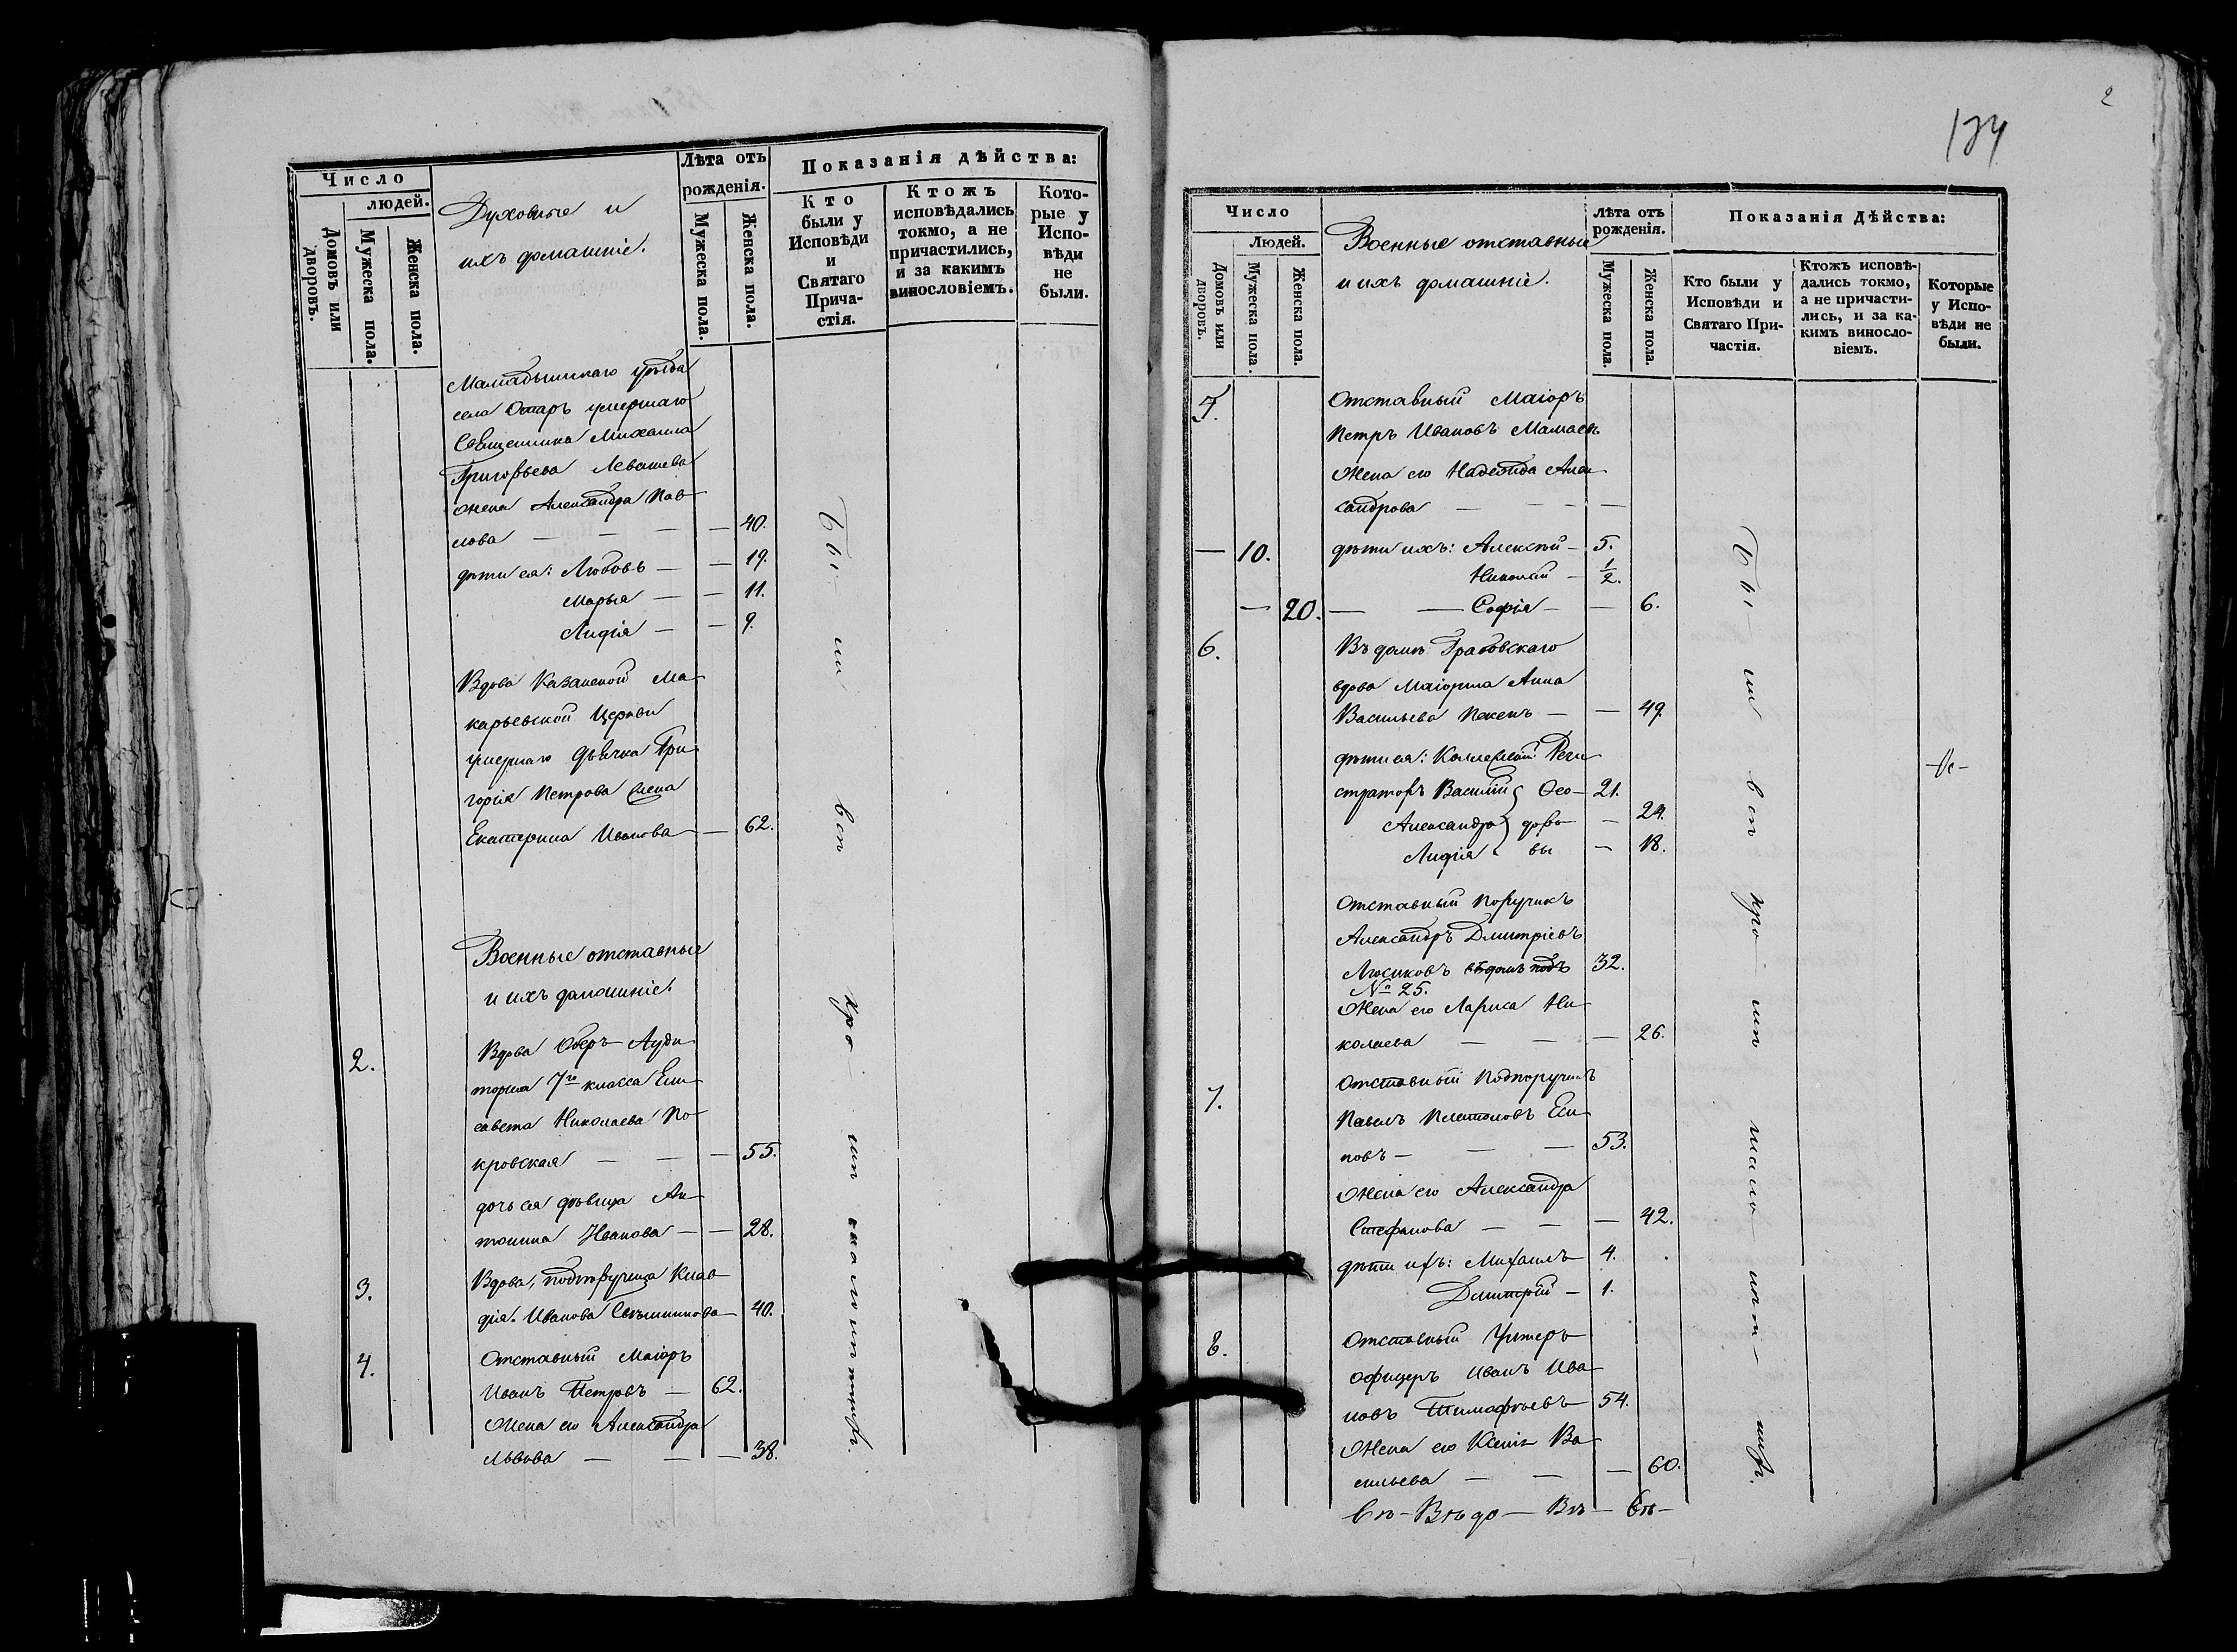 Число
людей.
Домовъ или дворовъ.
Мужеска пола.
Женска пола.
Духовные и
ихъ домашніе.
Лѣта отъ
рожденія.
Мужеска пола.
Женска пола.
Показанія дѣйства:
Кто
были у
Исповѣди
и
Святаго
Прича-
стія.
Ктожъ
исповѣдались
токмо, а не
причастились,
и за какимъ
винословіемъ.
Кото-
рые у
Испо-
вѣди
не
были.
Мамадышскаго уѣзда
села Отаръ умершаго
Священника Михаила
Григорьева Левашева
жена Александра Пав-
лова — — — — 40.
дѣти ея: Любовь — — 19.
Марья — — 11.
Лидія — — 9.
Вдова Казанской Ма-
карьевской Церкви
умершаго Дьячка Гри-
горія Петрова жена
Екатерина Иванова — 62.
Военные отставные
и ихъ домашніе.
2. Вдова Оберъ-Ауди-
торша 7го класса Ели-
савета Николаева По-
кровская — — — 55.
дочь ея дѣвица Ан-
тонина Иванова — — 28.
3. Вдова, подпоручица Клав-
дія Иванова — 40.
4. Отставный Маіоръ
Иванъ Петровъ — 62.
Жена его Александра
Львова — — — 38.
Бы-ли всѣ кро-мѣ
2
134
Число
Людей.
Домовъ или дворовъ.
Мужеска пола.
Женска пола.
Военные отставные
и ихъ домашніе.
Лѣта отъ
рожденія.
Мужеска пола.
Женска пола.
Показанія Дѣйства:
Кто были у
Исповѣди и
Святаго При-
частія.
Ктожъ исповѣ-
дались токмо,
а не причасти-
лись, и за ка-
кимъ виносло-
віемъ.
Которые
у Испо-
вѣди не
были.
5. Отставный Маіоръ
Петръ Ивановъ Мамаевъ
Жена его Надежда Алек-
сандрова — — — —
— 10. дѣти ихъ: Алексѣй — 5.
Николай — 1/2.
— 20. — — Софія — — 6.
6. Въ домѣ Грабовскаго
вдова Маіорша Анна
Васильева — — 49.
дѣти ея: Коллежскій Реги-
страторъ Василій Ѳео- 21.
Александра доро- — 24.
Лидія вы — 18.
Отставный Поручикъ
Александръ Дмитріевъ
въ домѣ подъ 32.
№ 25.
Жена его Лариса Ни-
колаева — — — 26.
7. Отставный Подпоручикъ
Павелъ Платоновъ Еси-
повъ — — — 53.
Жена его Александра
Стефанова — — — 42.
дѣти ихъ: Михаилъ 4.
Дмитрій — 1.
8. Отставный Унтеръ-
офицеръ Иванъ Ива-
новъ Тимофѣевъ 54.
Жена его Ксенія Ва-
сильева — — — 60.
Бы-ли всѣ кро-мѣ